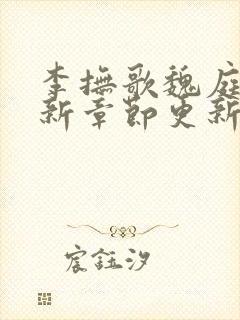 李撫歌魏庭
新章節更新
宸鈺汐